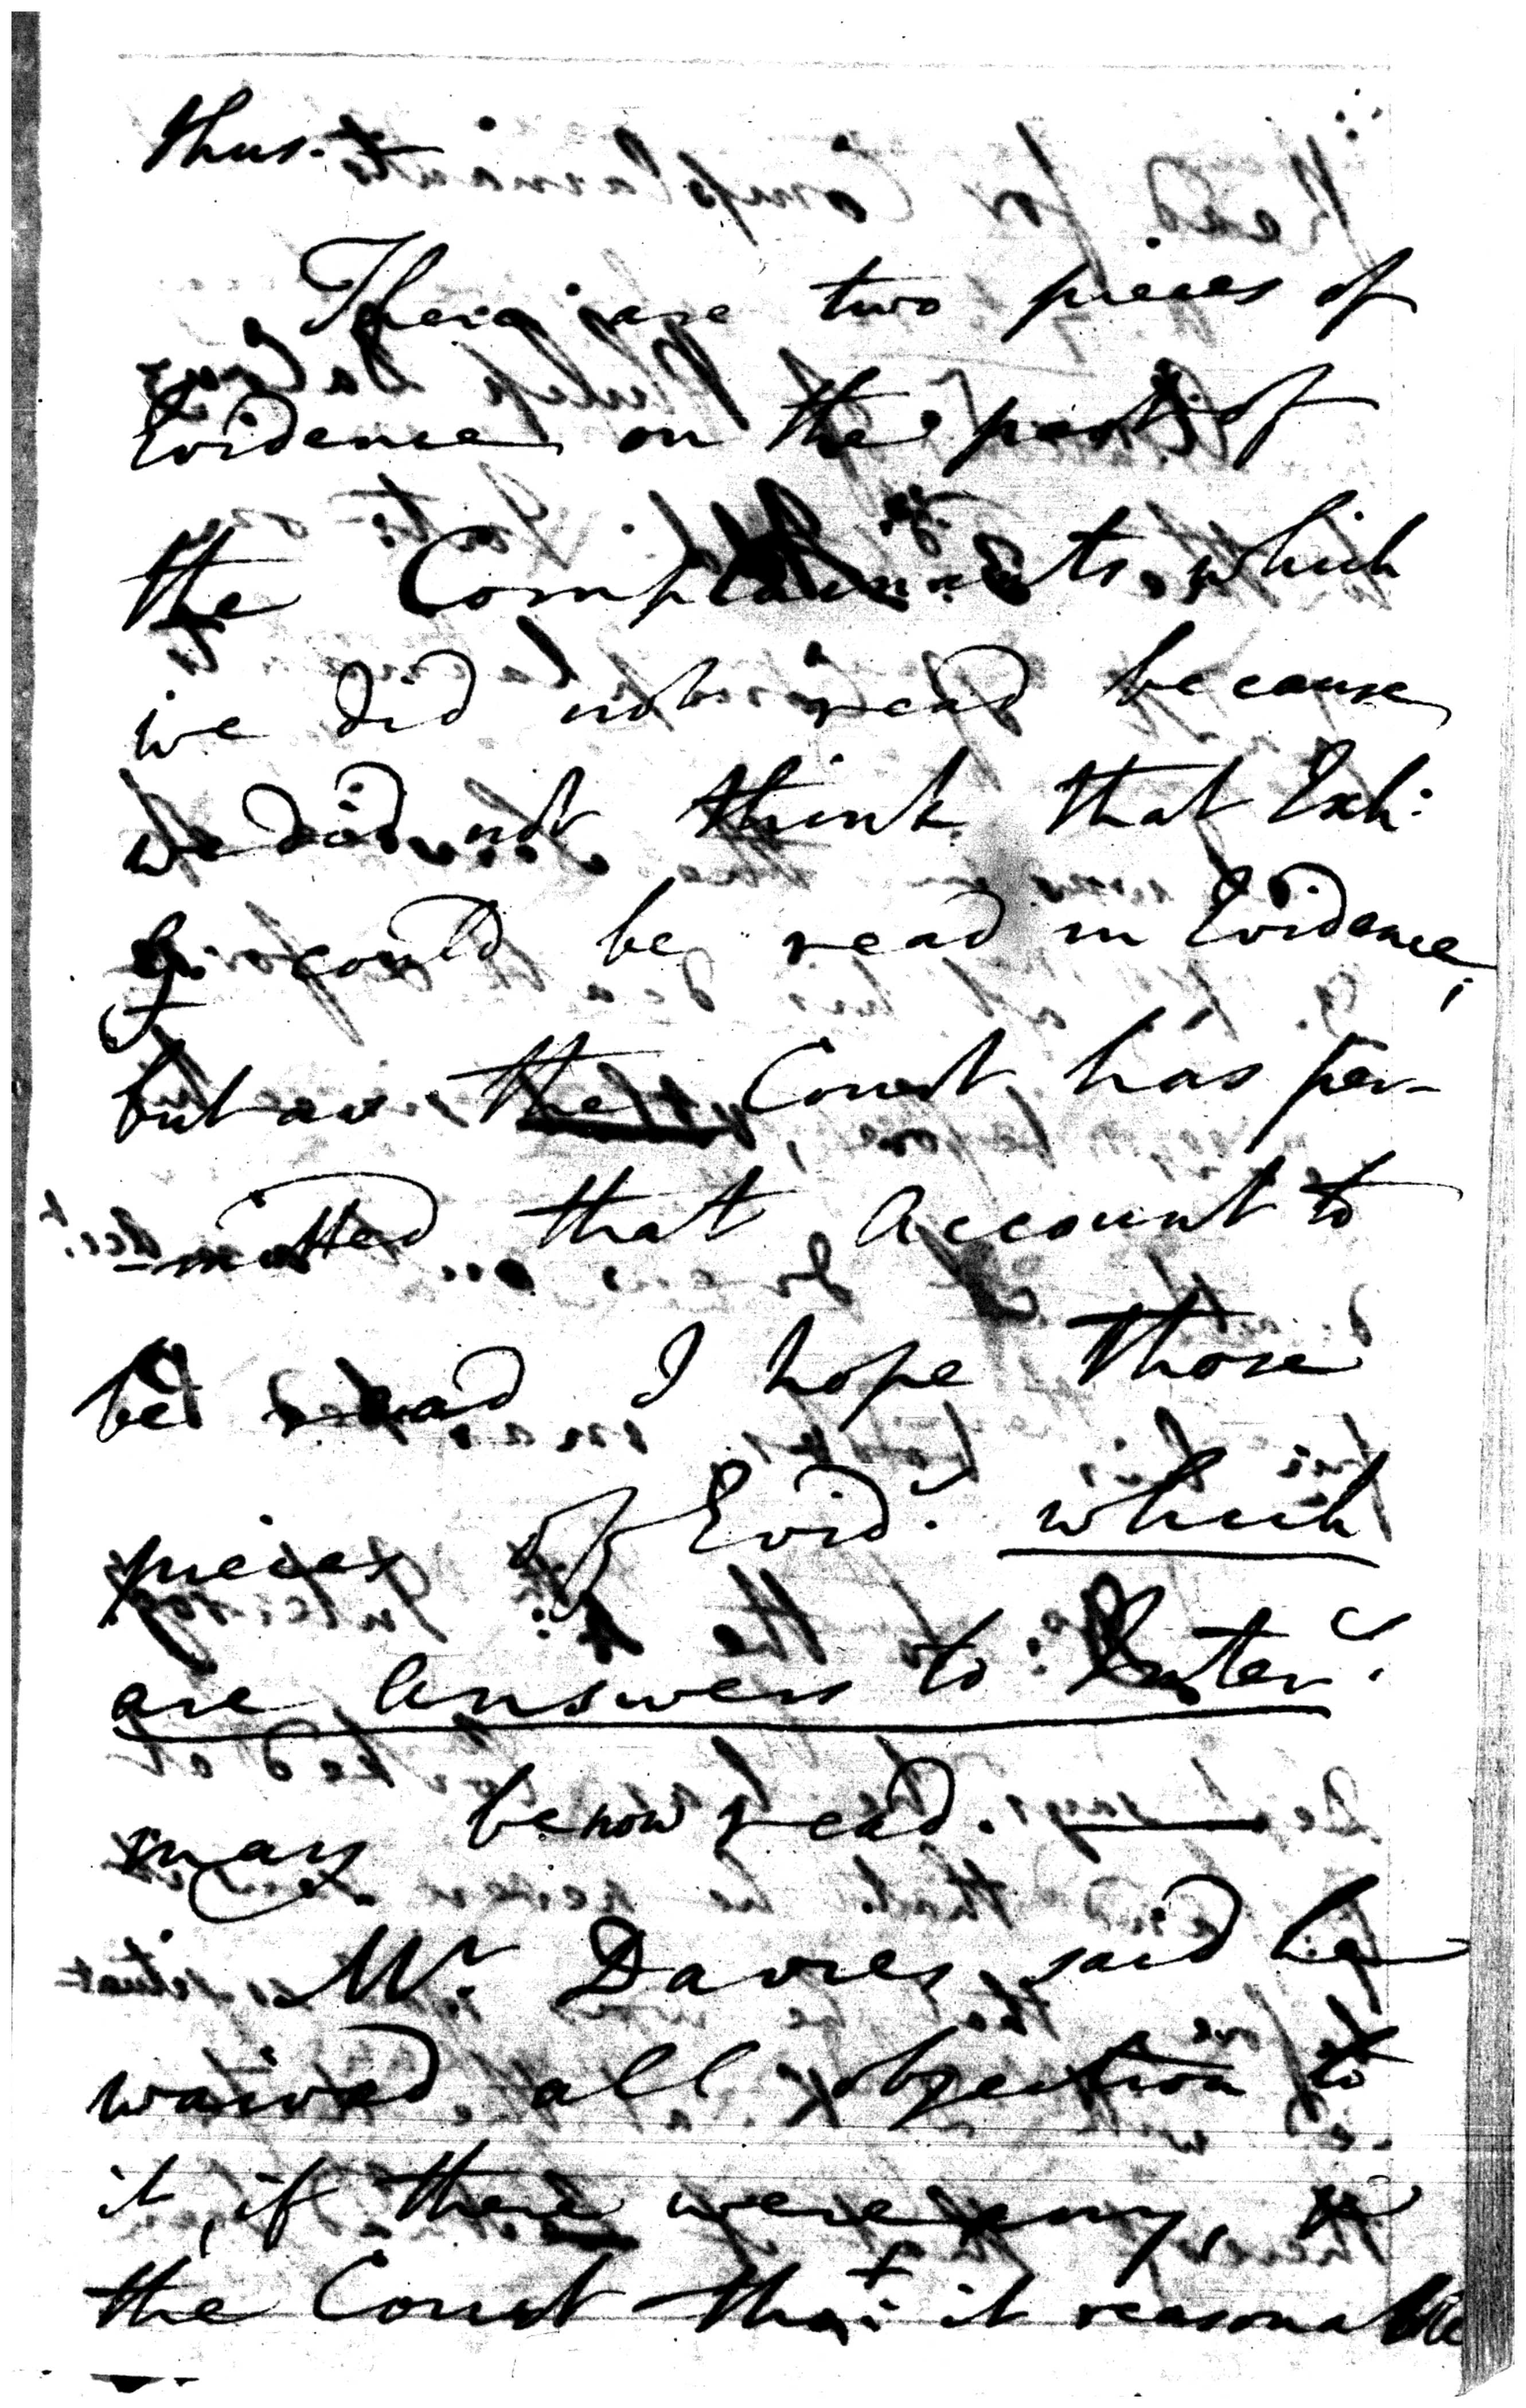 thus.
There are two pieces of
Evidence on the part of
the Complainants which
we did not read because
we did not think that Exh:
could be read in Evidence;
but as the Court has per-
-mitted that account to
be read I hope those
pieces of Evid: which
are answers to Inter.
may be now read.
Mr. Davies said he
waived all objection to
it, if there were any, &
the Court tho:t it reasonable